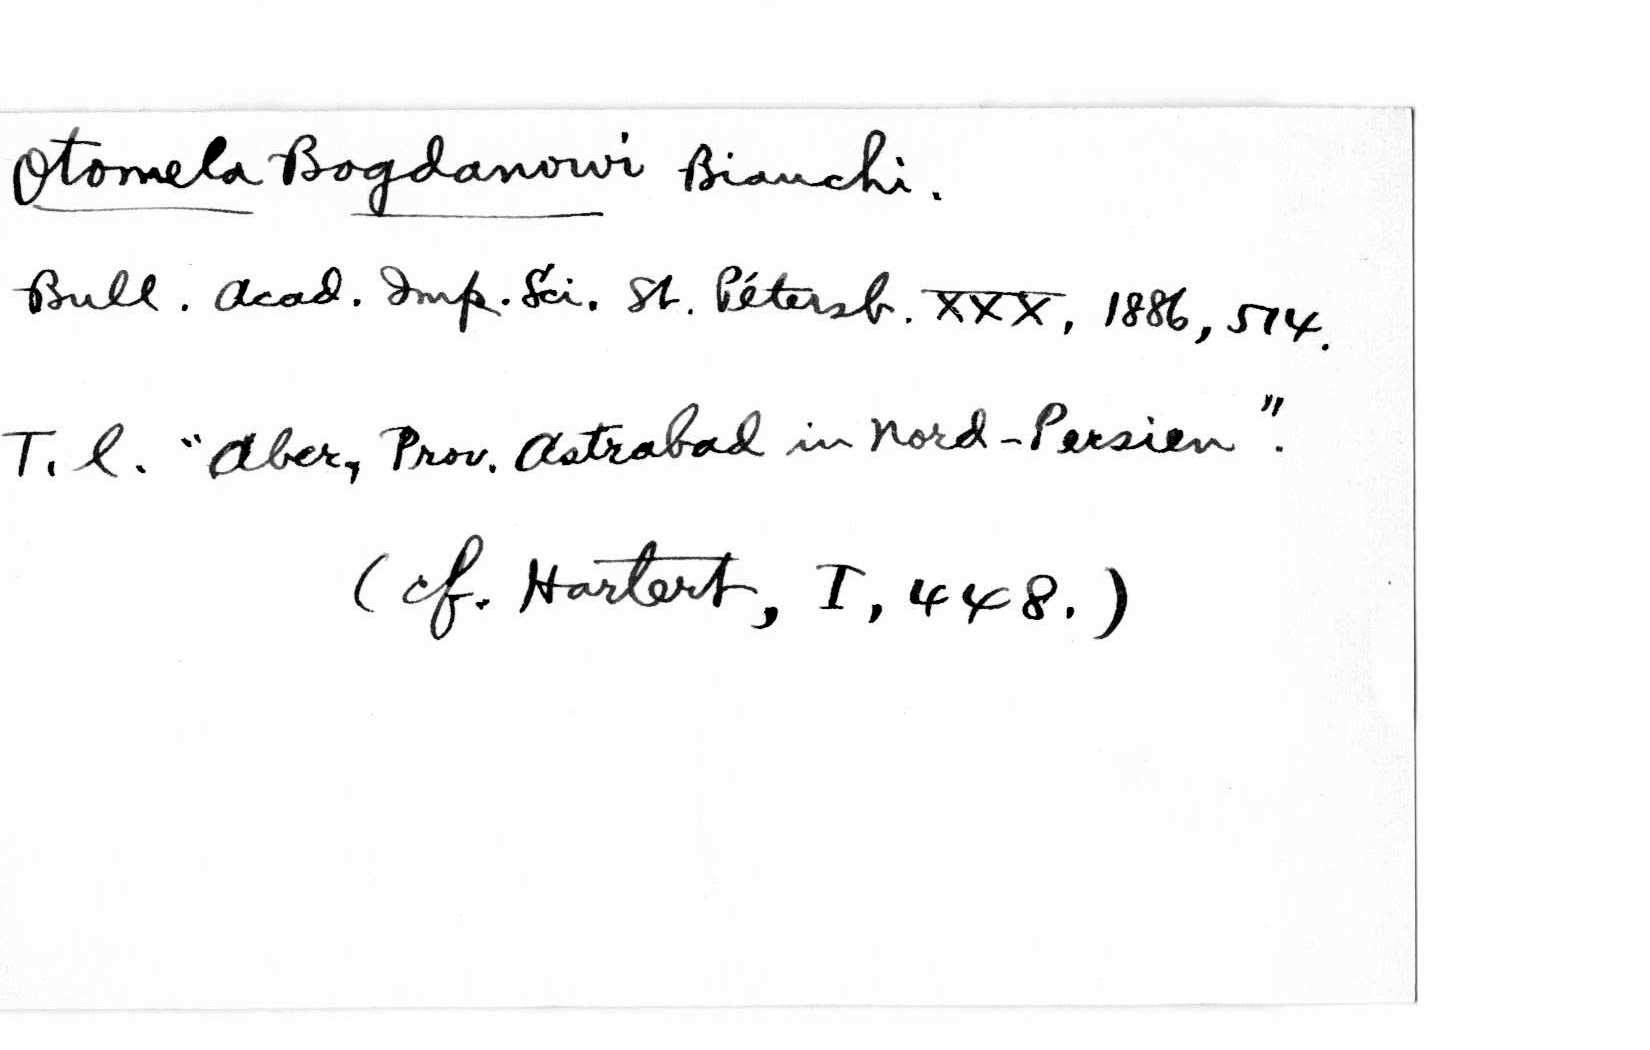 Otomela Bogdanowi Bianchi.
Bull. Acad. Imp. Sci. St. Pétersb. XXX, 1886, 514.
T. l. "Aber, Prov. Astrabad in Nord-Persien".
(cf. Hartert, I, 448.)